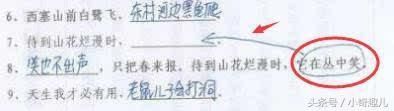 6、西塞山前白鹭飞，东村河边黑龟爬。
7、待到山花烂漫时，
8、俏也不出声，只把春来报。待到山花烂漫时，它在丛中笑。
9、天生我才必有用，老鼠儿子会打洞。
头条号/小奇趣儿